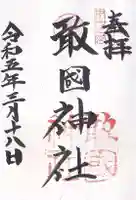 奉拝
敢國神社
令和五年三月十八日